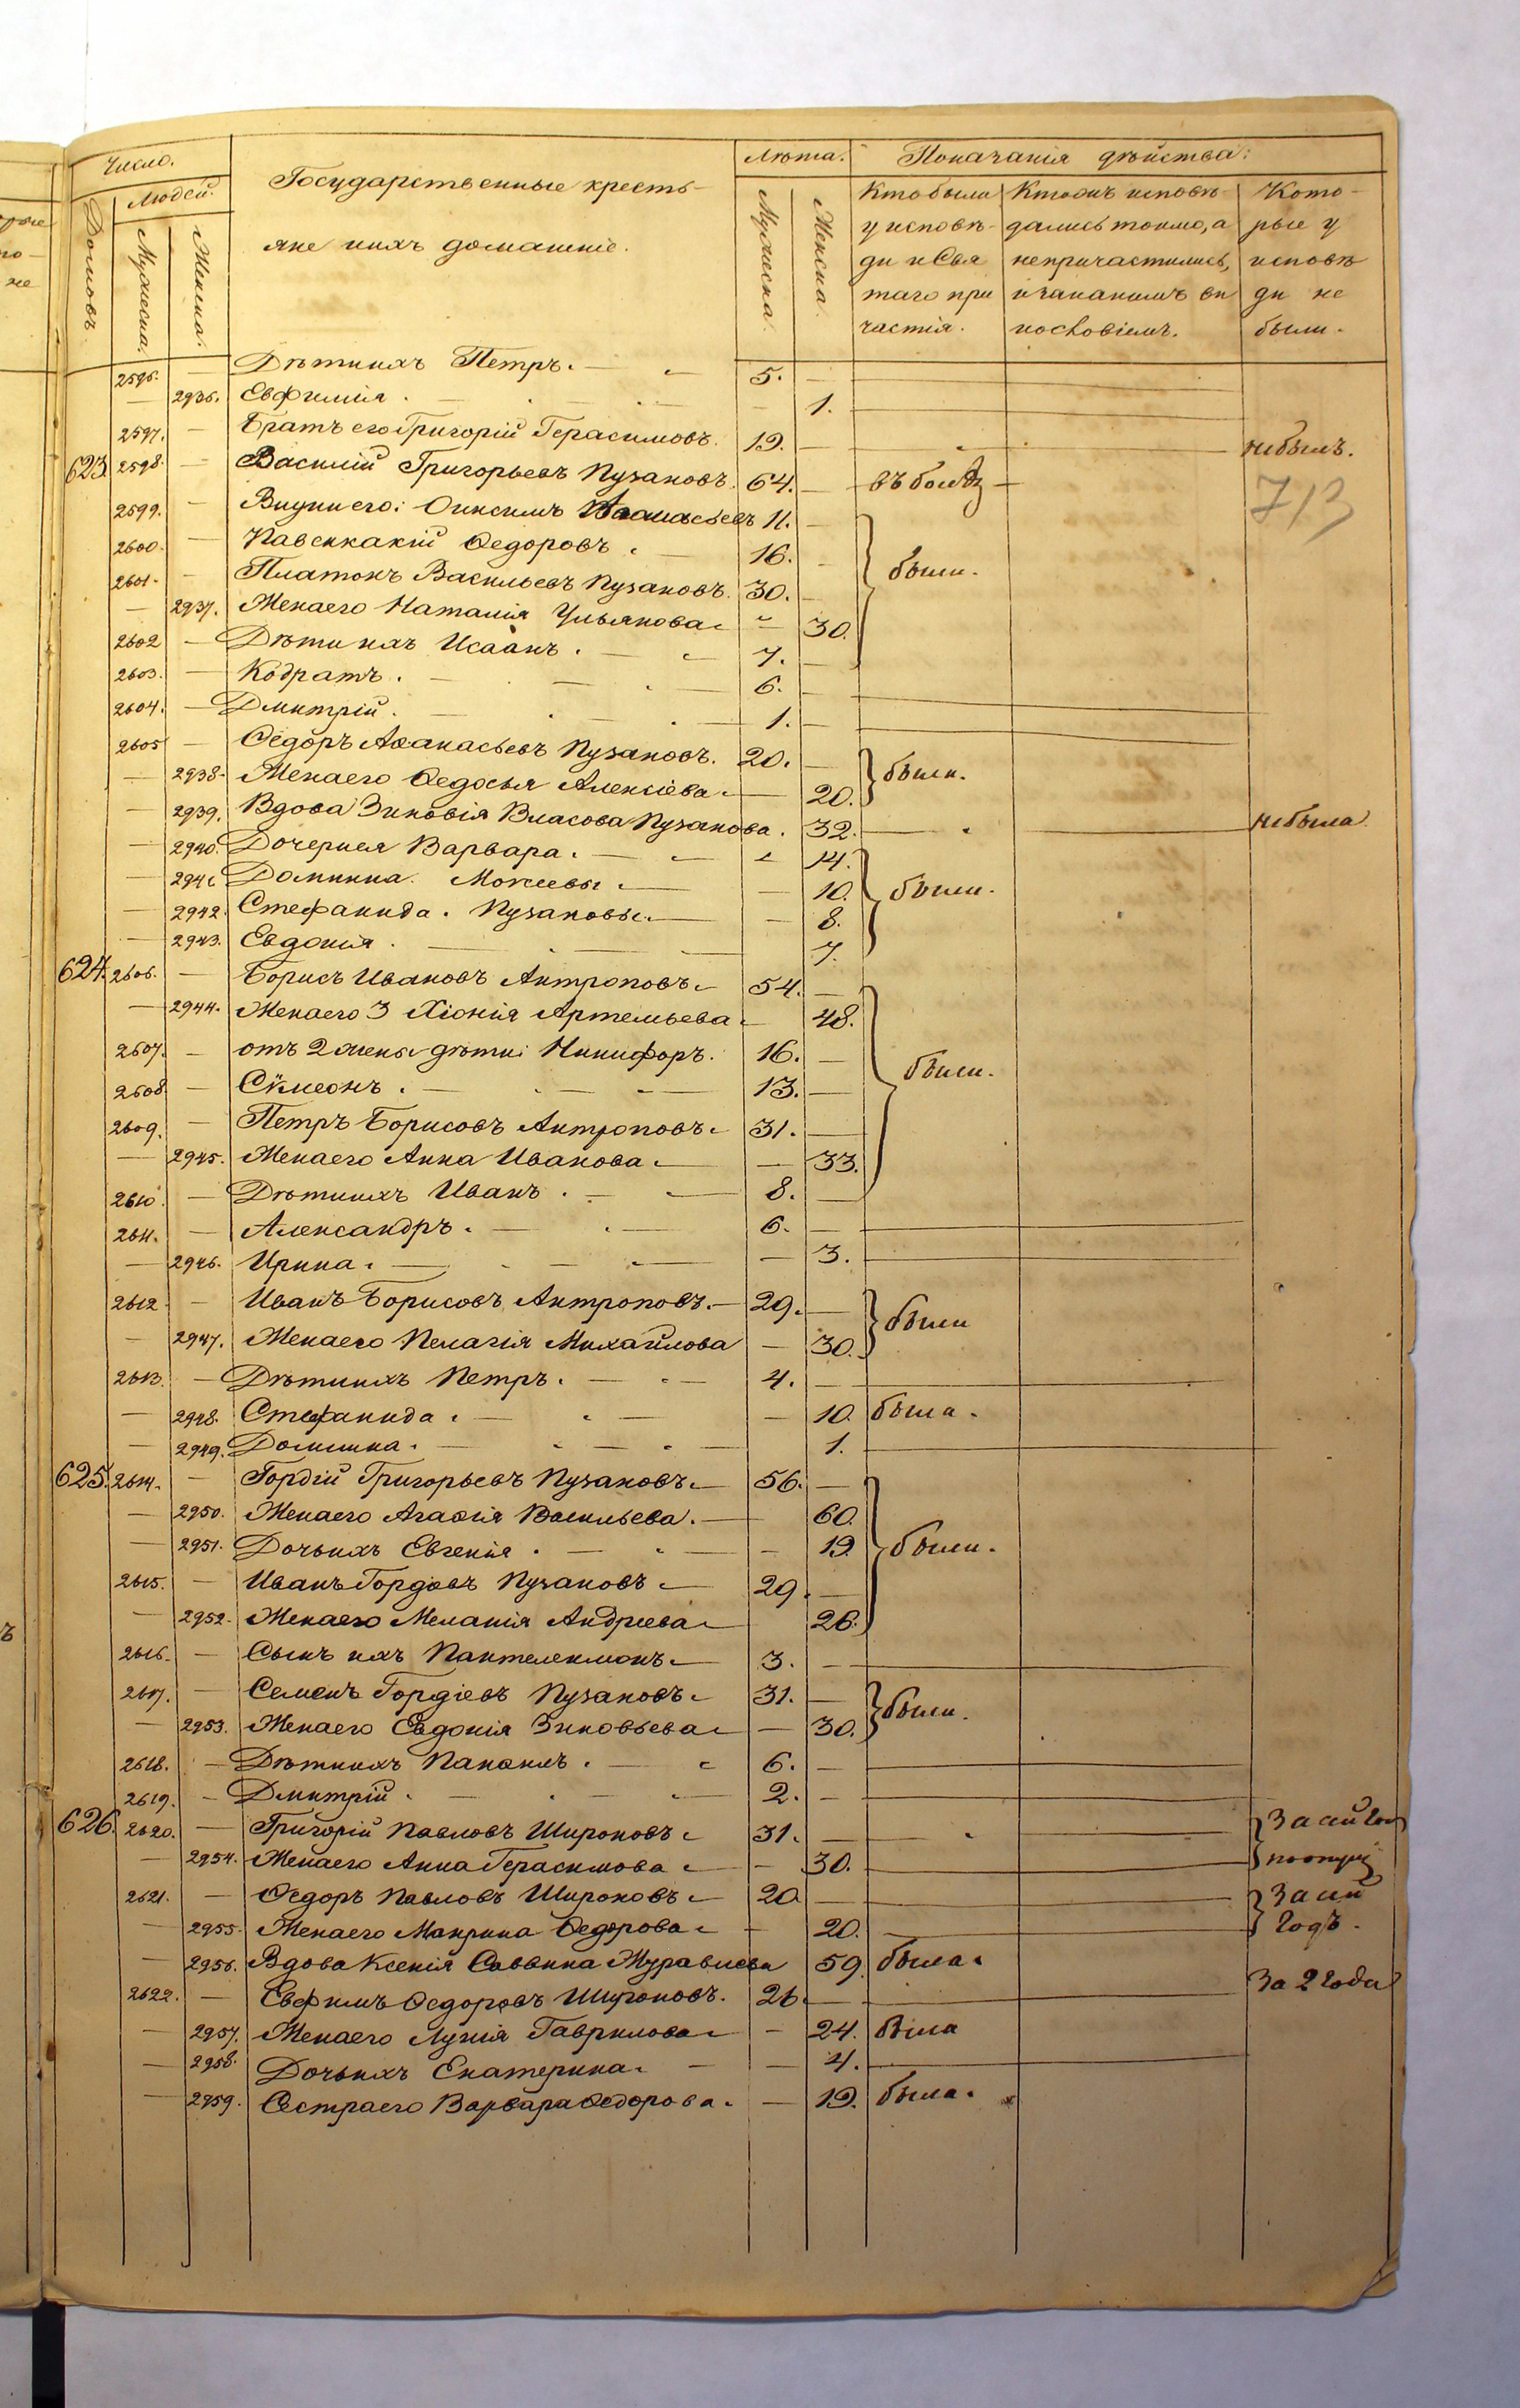 Число.
Людей.
Домовъ.
Мужеска.
Женска.
Государственные кресть-
яне ихъ домашніе.
Лѣта.
Мужеска.
Женска.
Показанія дѣйства:
Кто были
у исповѣ-
ди и Свя
таго при
частія.
Кто онъ исповѣ-
дались токмо, а
непричастились,
и за какимъ ви
Кото-
рые у
исповѣ
ди не
были.
— Дѣти ихъ Петръ. — 5. —
— 2936. Евфимія. — 1.
2597. — Братъ его Григорій Герасимовъ. 19. — небылъ.
623. 2598. — Василій Григорьевъ Пузановъ. 64. —
713
2599. — Внуки его: 11. —
2600. — Федоровъ. 16. — были.
2601. — Платонъ Васильевъ Пузановъ. 30. —
— 2937. Жена его Наталія Ульянова — 30.
2602 — Дѣти ихъ Исаакъ. — 7. —
2603. — Кодратъ. — 6. —
2604. — Дмитрій. — 1. —
2605 — Ѳедоръ Аѳанасьевъ Пузановъ. 20. — были.
— 2938. Жена его Ѳедосья Алексіева — 20.
— 2939. Вдова Зиновія Власова Пузанова. 32. — небыла.
— 2940. Дочери ея Варвара. — 14. были.
— 2941 Домника. Мокеевы — 10.
— 2942. Стефанида. Пузановы. — 8.
— 2943. Евдокія. — 7.
624. 2606. — Борисъ Ивановъ Антроповъ 54. —
— 2944. Жена его 3 Хіонія Артемьева 48.
2607. — отъ 2 жены дѣти: Никифоръ. 16. — были.
2608 — Сѵмеонъ. — 13. —
2609. — Петръ Борисовъ Антроповъ 31. —
— 2945. Жена его Анна Иванова — 33.
2610. — Дѣти ихъ Иванъ. — 8. —
2611. — Александръ. — 6. —
— 2946. Ирина. — 3.
2612 — Иванъ Борисовъ Антроповъ. — 29. — были
— 2947. Жена его Пелагія Михайлова — 30.
2613. — Дѣти ихъ Петръ. — 4. —
— 2948. Стефанида. — 10. была.
— 2949. Домника. — 1.
625. 2614. — Гордій Григорьевъ Пузановъ — 56. —
— 2950. Жена его Агаѳія Васильева. — 60.
— 2951. Дочь ихъ Евгенія. — 19. были.
2615. — Иванъ Гордѣевъ Пузановъ — 29. —
— 2952. Жена его Меланія Андреева 26.
2616. — Сынъ ихъ Пантелеимонъ — 3. —
2617. — Семенъ Гордіевъ Пузановъ 31. — были.
— 2953. Жена его Евдокія Зиновьева — 30.
2618. — Дѣти ихъ — 6. —
2619. — Дмитрій. — 2. —
626. 2620. — Григорій Павловъ Широковъ 31. — За сій годъ
— 2954. Жена его Анна Герасимова — 30.
2621. — Ѳедоръ Павловъ Широковъ — 20 — За сій
— 2955. Жена его Макрина Ѳедорова — 20. годъ.
— 2956. Вдова Ксенія Саввина Журавлева 59. была.
2622. — Евфимъ Ѳедоровъ Широковъ. 26. — За 2 года
— 2957. Жена его Лукія Гаврилова — 24. была
— 2958. Дочь ихъ Екатерина. — 4.
— 2959. Сестра его Варвара Ѳедорова. — 19. была.